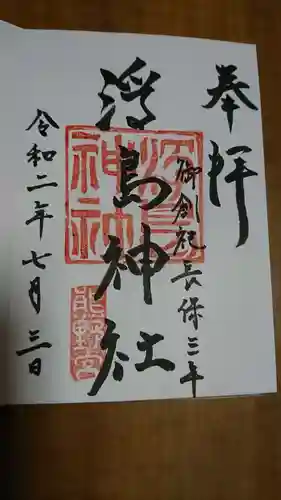 奉拝
御創祀長保三年
浮島神社
浮島神社
熊野宮
令和二年七月三日